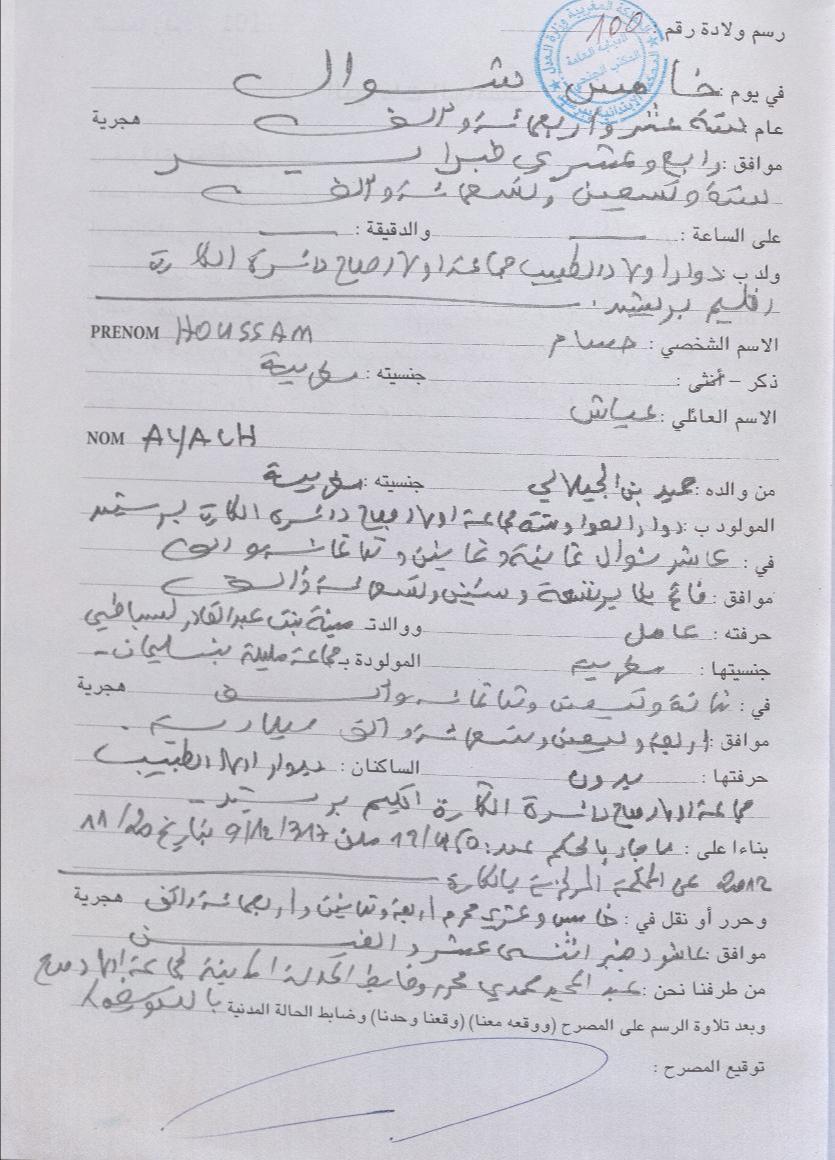 رسم ولادة رقم : 100
في يوم : خامس شوال
عام : ستة عشر وأربعمائة وألف هجرية
موافق : رابع وعشري فبراير
ستة وتسعين وتسعمائة وألف
على الساعة : ــ والدقيقة : ــ
ولد ب : دوار اولاد الطبيب جماعة اولاد صباح دائرة الكارة
اقليم برشيد
الاسم الشخصي : حسام PRENOM HOUSSAM
ذكر – أنثى : جنسيته : مغربية
الاسم العائلي : عياش
NOM AYACH
من والده : حميد بن الجيلالي جنسيته : مغربية
المولود ب : دوار جماعة اولاد صباح دائرة الكارة برشيد
في : عاشر شوال ثمانية وثمانين وثلاثمائة وألف
موافق : فاتح يناير تسعة وستين وتسعمائة وألف
حرفته : عامل ووالدته مينة بنت عبد القادر
جنسيتها : مغربية المولودة ب جماعة مليلة بنسليمان
في : وتسعين وثلاثمائة وألف هجرية
موافق : أربع وسبعين وتسعمائة وألف ميلادية
حرفتها : بدون الساكنان : بدوار اولاد الطبيب
جماعة اولاد صباح دائرة الكارة اقليم برشيد
بناءا على : ما جاء بالحكم عدد : ملف 9/12/317 بتاريخ 20/11
2012 عن المحكمة بالكارة
وحرر أو نقل في : خامس وعشري محرم أربعة وثلاثين وأربعمائة وألف هجرية
موافق : عاشر دجنبر اثني عشر و ألفين
من طرفنا نحن : عبد المجيد محمدي محرر وضابط الحالة المدنية لجماعة اولاد صباح
وبعد تلاوة الرسم على المصرح (ووقعه معنا) (وقعنا وحدنا) وضابط الحالة المدنية
توقيع المصرح :